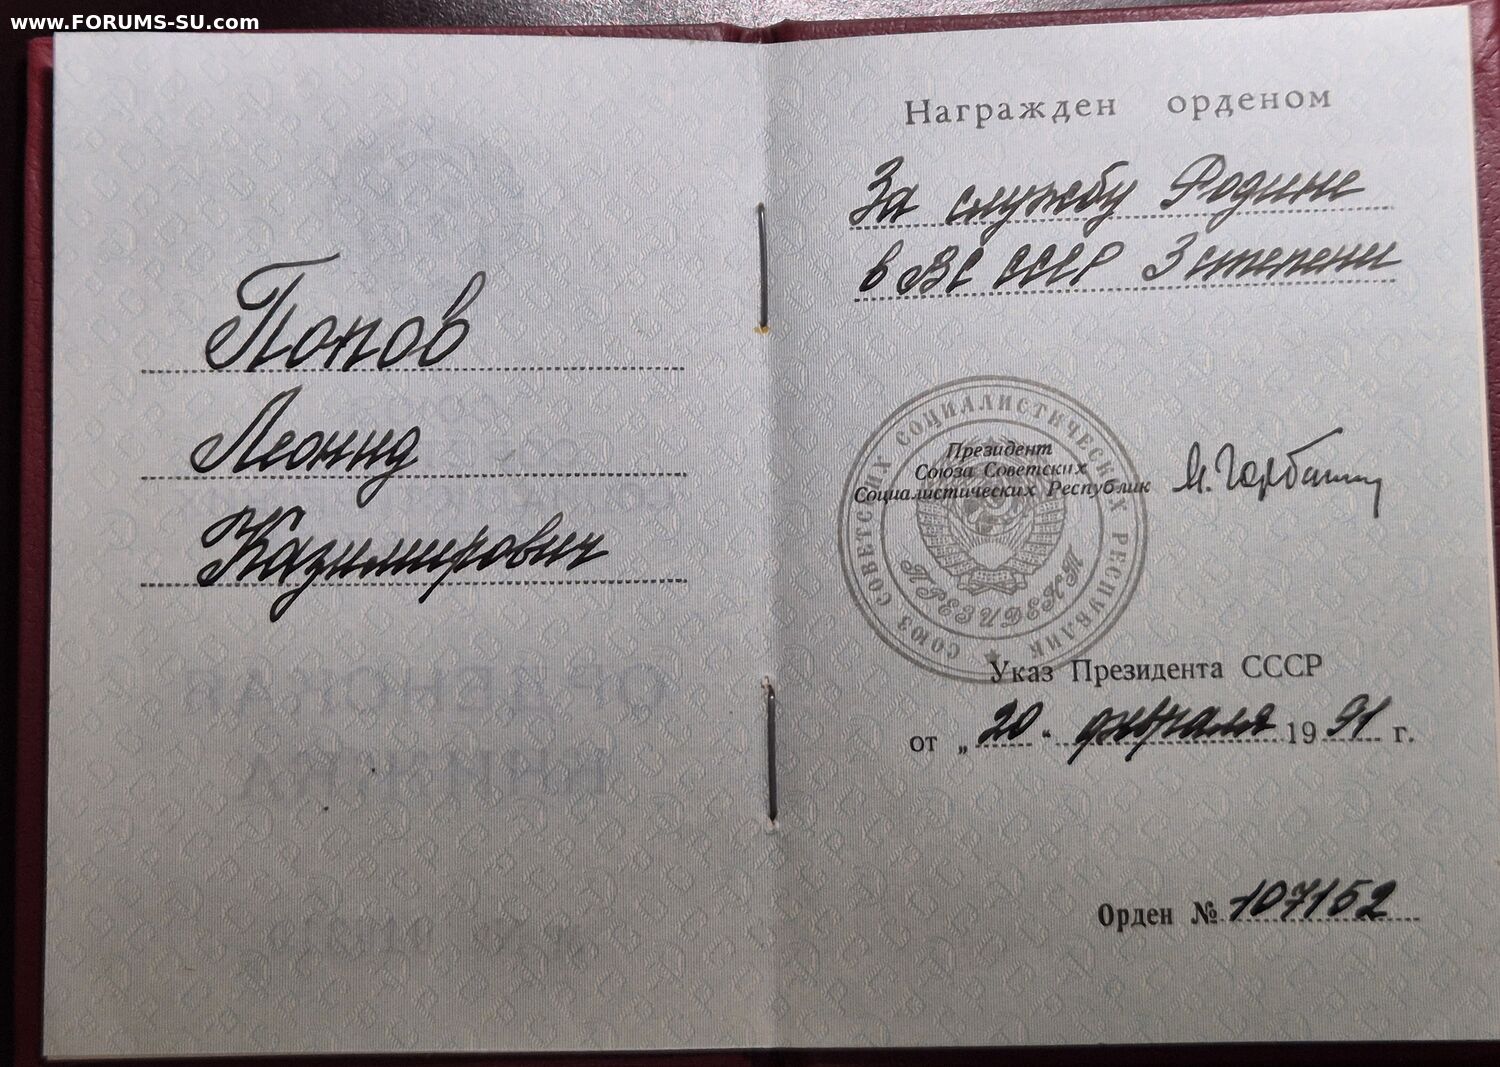 www.FORUMS-SU.com
Попов
Леонид
Казимирович
Награжден орденом
За службу Родине
в ВС СССР 3 степени
СОЮЗ СОВЕТСКИХ СОЦИАЛИСТИЧЕСКИХ РЕСПУБЛИК
ПРЕЗИДЕНТ
Президент
Союза Советских
Социалистических Республик
М. Горбачев
Указ Президента СССР
от „20“ февраля 1991 г.
Орден № 107152